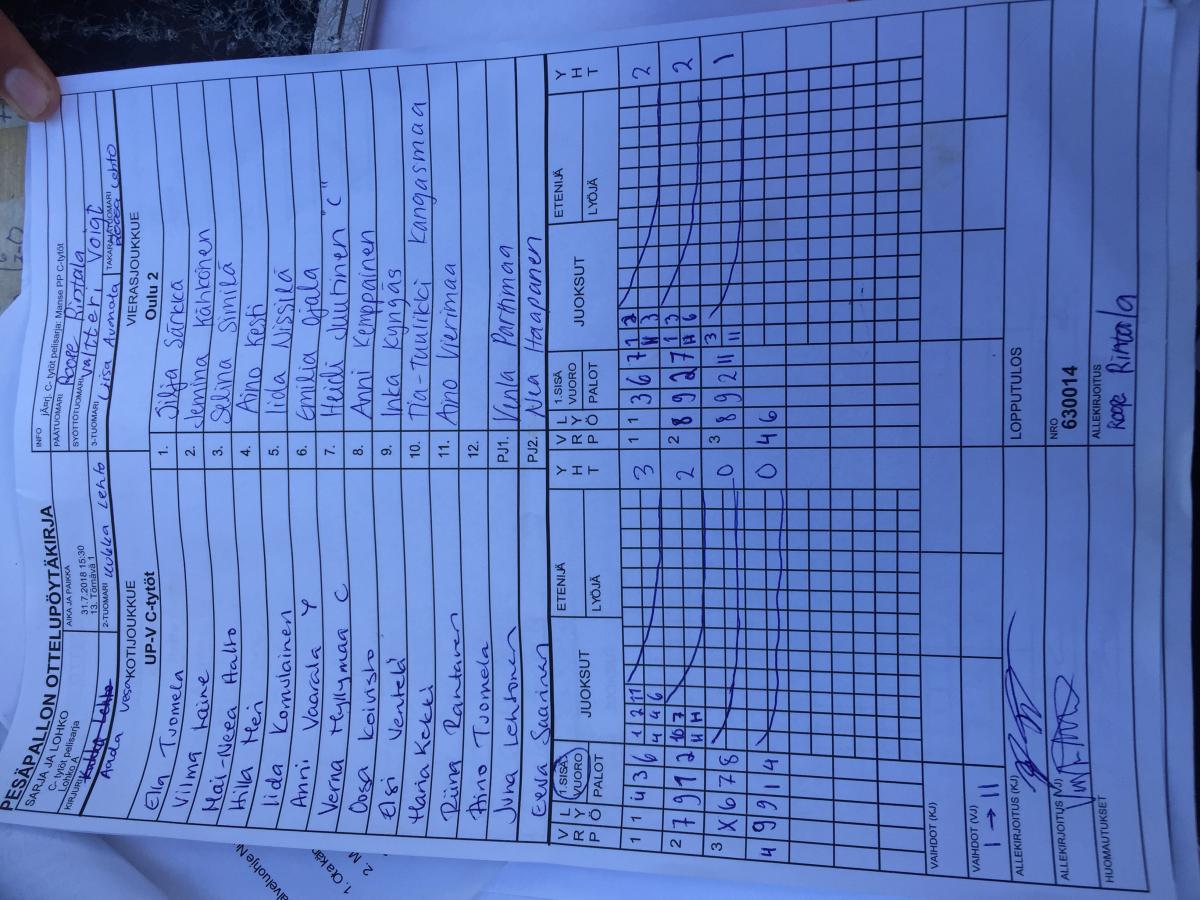 PESÄPALLON OTTELUPÖYTÄKIRJA
SARJA JA LOHKO
C- tytöt pelisarja
Lohko A
AIKA JA PAIKKA
31.7.2018 15:30
13. Törnävä 1
INFO jÄrj. C- tytöt pelisarja: Manse PP C-tytöt
PÄÄTUOMARI Roope Rintala
SYÖTTÖTUOMARI Valtteri Voigt
KIRJURI Kukka Lehto
Aada
2-TUOMARI Kukka Lehto
3-TUOMARI Liisa Aumala
TAKARAJATUOMARI Roosa Lehto
KOTIJOUKKUE
UP-V C-tytöt
VIERASJOUKKUE
Oulu 2
Ella Tuomela 1. Silja Särkkä
Vilma Laine 2. Jemina Kähkönen
Mai-Neea Aalto 3. Selina Similä
Hilla Meri 4. Aino Kesti
Iida Komulainen 5. Iida Nissilä
Anni Vaarala Y 6. Emilia Ojala
Verna Myllymaa C 7. Heidi Juutinen "C"
Oosa Koivisto 8. Anni Kemppainen
Elsi Ventelä 9. Inka Kyngäs
Hania Kekki 10. Tia-Tuulikki Kangasmaa
Riina Rantanen 11. Aino Vierimaa
Aino Tuomela 12.
Juha Lehtonen PJ1. Venla Parhmaa
Eeva Saarinen PJ2. Nea Haapanen
V R P L Y Ö 1.SISÄ VUORO PALOT JUOKSUT ETENIJÄ LYÖJÄ Y H T V R P L Y Ö 1.SISÄ VUORO PALOT JUOKSUT ETENIJÄ LYÖJÄ Y H T
1 1 4 3 6 1 2 11 3 1 1 3 6 7 1 2 2
4 4 6 H 3
2 7 9 1 2 10 7 2 2 8 9 2 7 1 3 2
H H H 6
3 X 6 7 8 0 3 8 9 2 11 3 1
11
4 9 9 1 4 0 4 6
VAIHDOT (KJ)
VAIHDOT (VJ)
1 → 11
ALLEKIRJOITUS (KJ)
LOPPUTULOS
ALLEKIRJOITUS (VJ)
NRO
630014
HUOMAUTUKSET
ALLEKIRJOITUS
Roope Rintala